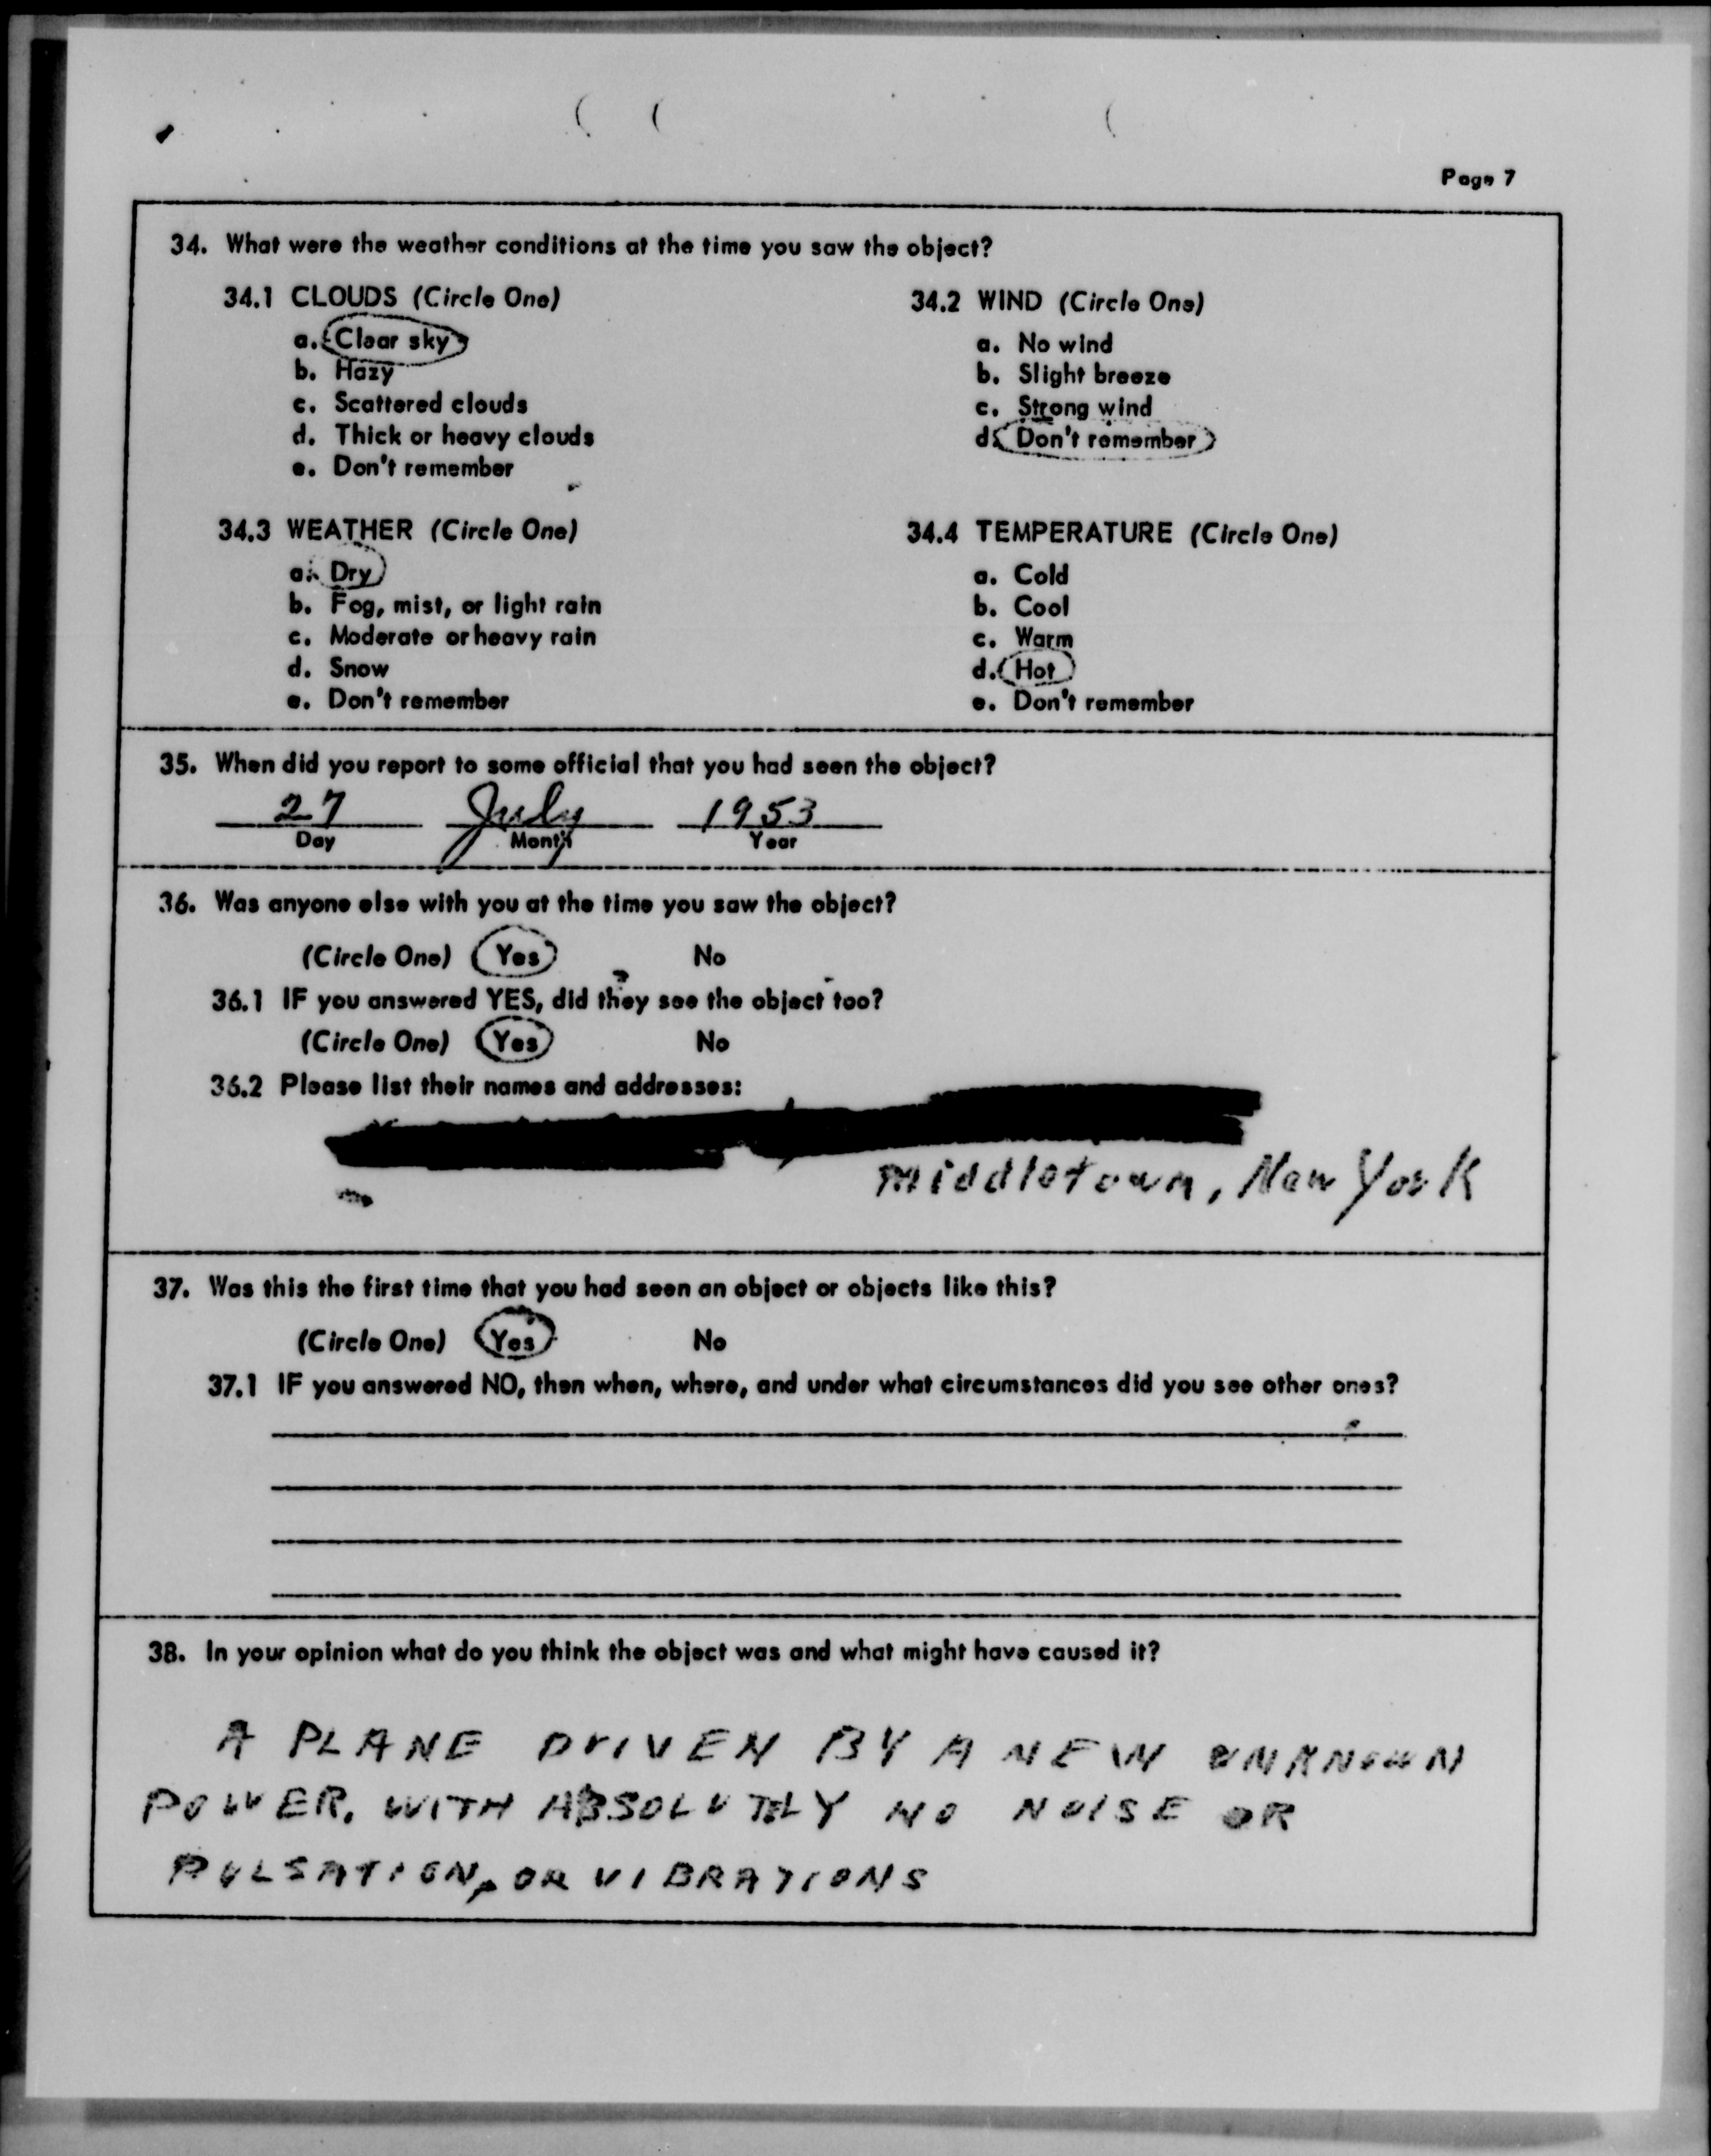 Page 7
34. What were the weather conditions at the time you saw the object?
34.1 CLOUDS (Circle One)
a. Clear sky
b. Hazy
c. Scattered clouds
d. Thick or heavy clouds
e. Don't remember
34.2 WIND (Circle One)
a. No wind
b. Slight breeze
c. Strong wind
d. Don't remember
34.3 WEATHER (Circle One)
a. Dry
b. Fog, mist, or light rain
c. Moderate or heavy rain
d. Snow
e. Don't remember
34.4 TEMPERATURE (Circle One)
a. Cold
b. Cool
c. Warm
d. Hot
e. Don't remember
35. When did you report to some official that you had seen the object?
27 July 1953
Day Month Year
36. Was anyone else with you at the time you saw the object?
(Circle One) Yes No
36.1 IF you answered YES, did they see the object too?
(Circle One) Yes No
36.2 Please list their names and addresses:
Middletown, New York
37. Was this the first time that you had seen an object or objects like this?
(Circle One) Yes No
37.1 IF you answered NO, then when, where, and under what circumstances did you see other ones?
38. In your opinion what do you think the object was and what might have caused it?
A PLANE DRIVEN BY A NEW UNKNOWN
POWER, WITH ABSOLUTELY NO NOISE OR
PULSATION, OR VIBRATIONS